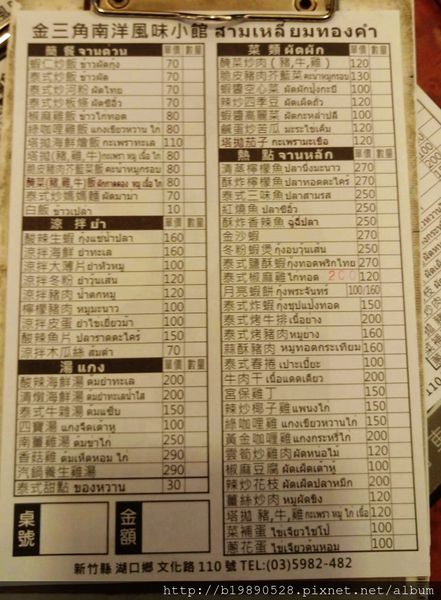 金三角南洋風味小館 สามเหลี่ยมทองคำ
簡餐 จานด่วน 單價 數量
蝦仁炒飯 ข้าวผัดกุ้ง 70
泰式炒飯 ข้าวผัด 70
泰式炒河粉 ผัดไทย 70
泰式炒板條 ผัดซีอิ้ว 70
椒麻雞飯 ข้าวไก่ทอด 80
綠咖哩雞飯 แกงเขียวหวาน ไก่ 80
塔拋海鮮燴飯 กะเพราทะเล 110
塔拋(豬,雞,牛) กะเพรา หมู เนื้อ ไก่ 80
脆皮豬肉芥藍菜飯 คะน้าหมูกรอบ 80
醃菜(豬,雞,牛)飯 ผักกาดดอง หมู เนื้อ ไก่ 80
泰式炒媽媽麵 ผัดมาม่า 70
白飯 ข้าวเปล่า 10
涼拌 ยำ 單價 數量
酸辣生蝦 กุ้งแช่น้ำปลา 160
涼拌海鮮 ยำทะเล 160
涼拌大薄片 ยำหัวหมู 100
涼拌冬粉 ยำวุ้นเส้น 100
涼拌豬肉 น้ำตกหมู 120
檸檬豬肉 หมูมะนาว 100
涼拌皮蛋 ยำไข่เยี่ยวม้า 100
酸辣魚片 ปลาราดตะไคร้ 150
涼拌木瓜絲 ส้มตำ 70
湯 แกง 單價 數量
酸辣海鮮湯 ต้มยำทะเล 200
清燉海鮮湯 ต้มยำทะเลน้ำใส 200
泰式牛雜湯 ต้มแซ่บ 150
四寶湯 แกงจืดเต้าหู้ 100
南薑雞湯 ต้มข่าไก่ 250
香菇雞 ต้มเห็ดหอม ไก่ 290
汽鍋養生雞湯 290
泰式甜點 ของหวาน 30
桌號
金額
菜類 ผัดผัก 單價 數量
醃菜炒肉(豬,牛,雞) 120
脆皮豬肉芥藍菜 คะน้าหมูกรอบ 130
蝦醬空心菜 ผัดผักบุ้งกะปิ 100
辣炒四季豆 ผัดเผ็ดถั่ว 100
蝦醬高麗菜 ผัดกะหล่ำปลี 100
鹹蛋炒苦瓜 มะระไข่เค็ม 120
塔拋茄子 กะเพรามะเขือ 120
熱點 จานหลัก 單價 數量
清蒸檸檬魚 ปลานึ่งมะนาว 270
酥炸檸檬魚 ปลาทอดตะไคร้ 270
泰式三味魚 ปลาสามรส 250
紅燒魚 ปลาซีอิ้ว 250
酥炸香辣魚 ฉู่ฉี่ปลา 250
金沙蝦 270
冬粉蝦煲 กุ้งอบวุ้นเส้น 250
泰式鹽酥蝦 กุ้งทอดพริกไทย 270
泰式椒麻雞 ไก่ทอด 200 120
月亮蝦餅 กุ้งพระจันทร์ 100/160
泰式炸蝦 กุ้งชุบแป้งทอด 150
泰式烤牛排 เนื้อย่าง 200
泰式烤豬肉 หมูย่าง 120
蒜酥豬肉 หมูทอดกระเทียม 160
泰式春捲 เปาะเปี๊ยะ 100
牛肉干 เนื้อแดดเดียว 200
宮保雞丁 150
辣炒椰子雞 แพนงไก่ 150
綠咖哩雞 แกงเขียวหวานไก่ 150
黃金咖哩雞 แกงกะหรี่ไก่ 200
雲筍炒雞肉 ผัดหน่อไม้ 120
椒麻豆腐 ผัดเผ็ดเต้าหู้ 120
辣炒花枝 ผัดเผ็ดปลาหมึก 200
薑絲炒肉 หมูผัดขิง 100
塔拋 豬,牛,雞 กะเพรา หมู ไก่ เนื้อ 120
菜補蛋 ไข่เจียวไชโป๊ 100
蔥花蛋 ไข่เจียวต้นหอม 100
新竹縣 湖口鄉 文化路 110 號 TEL:(03)5982-482
http://b19890528.pixnet.net/album